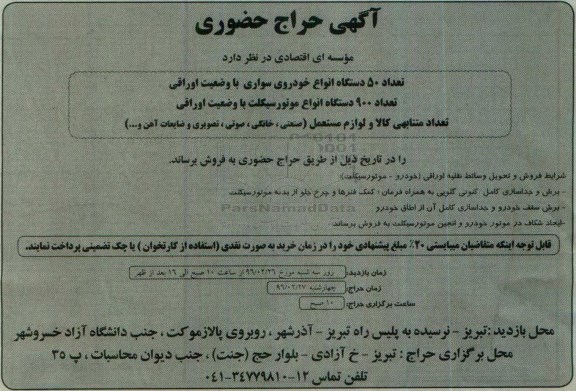 آگهی حراج حضوری
مؤسسه ای اقتصادی در نظر دارد
تعداد ۵۰ دستگاه انواع خودروی سواری با وضعیت اوراقی
تعداد ۹۰۰ دستگاه انواع موتورسیکلت با وضعیت اوراقی
تعداد متنابهی کالا و لوازم مستعمل (صنعتی ، خانگی ، صوتی ، تصویری و ضایعات آهن و...)
را در تاریخ ذیل از طریق حراج حضوری به فروش برساند.
شرایط فروش و تحویل وسائط نقلیه اوراقی (خودرو - موتورسیکلت):
- برش و جداسازی کامل کنونی گلویی به همراه فرمان ؛ کمک فنرها و چرخ جلو از بدنه موتورسیکلت
- برش سقف خودرو و جداسازی کامل آن از اطاق خودرو
-ایجاد شکاف در موتور خودرو و انجین موتورسیکلت به فروش برساند.
قابل توجه اینکه متقاضیان میبایستی ۲۰٪ مبلغ پیشنهادی خود را در زمان خرید به صورت نقدی (استفاده از کارتخوان ) یا چک تضمینی پرداخت نمایند.
زمان بازدید: روز سه شنبه مورخ ۹۶/۰۲/۲۶ از ساعت ۱۰ صبح الی ۱۶ بعد از ظهر
زمان حراج: چهارشنبه ۹۶/۰۲/۲۷
ساعت برگزاری حراج : ۱۰ صبح
محل بازدید :تبریز - نرسیده به پلیس راه تبریز - آذرشهر ، روبروی پالازموکت ، جنب دانشگاه آزاد خسروشهر
محل برگزاری حراج : تبریز - خ آزادی - بلوار حج (جنت) ، جنب دیوان محاسبات ، پ ۳۵
تلفن تماس ۱۲-۳۴۷۷۹۸۱۰-۰۴۱
ParsNamadData